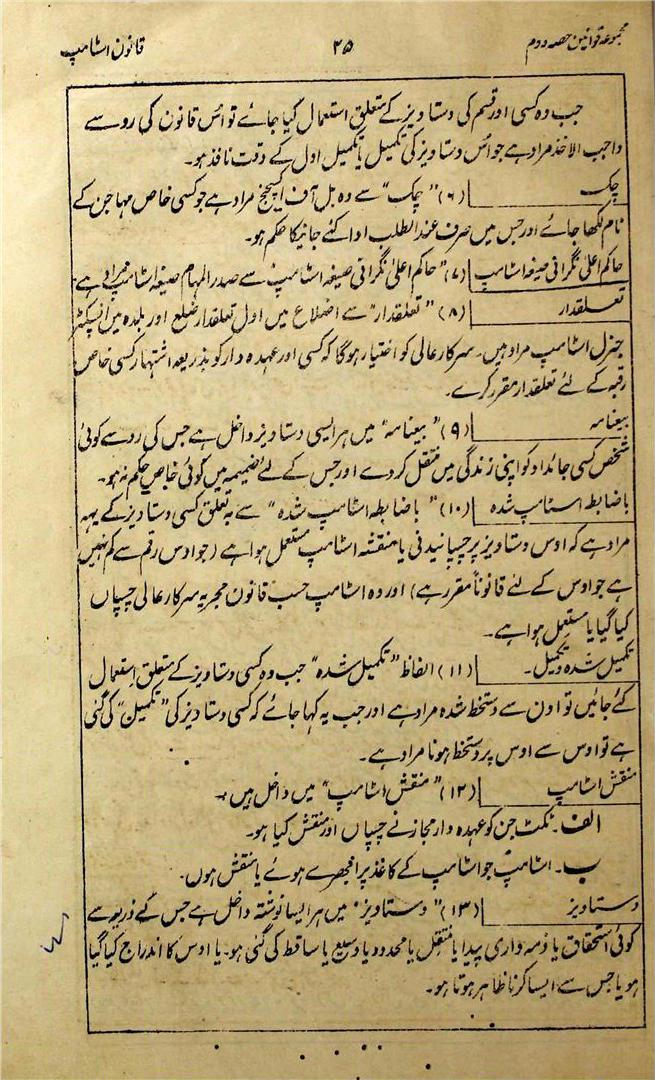 مجموعہ قوانین حصہ دوم ۲۵ قانون اسٹامپ
جب وہ کسی اور قسم کی دستاویز کے متعلق استعمال کیا جائے تو اُس قانون کی رو سے
واجب الاخذ مراد ہے جو اُس دستاویز کی تکمیل یا تکمیل اول کے وقت نافذ ہو۔
چک (۶) "چک" سے وہ بل آف اکسچینج مراد ہے جو کسی خاص مہاجن کے
نام لکھا جائے اور جس میں صرف عند الطلب ادا کئے جانیکا حکم ہو۔
حاکم اعلیٰ نگرانی صیغہ اسٹامپ (۷) "حاکم اعلیٰ نگرانی صیغہ اسٹامپ" سے صدر المہام صیغہ اسٹامپ مراد ہے۔
تعلقدار (۸) "تعلقدار" سے اضلاع میں اول تعلقدار ضلع اور بلدہ میں انسپکٹر
جنرل اسٹامپ مراد ہیں۔ سرکار عالی کو اختیار ہوگا کہ کسی اور عہدہ دار کو بذریعہ اشتہار کسی خاص
رقبہ کے لئے تعلقدار مقرر کرے۔
بیعنامہ (۹) "بیعنامہ" میں ہر ایسی دستاویز داخل ہے جس کی رو سے کوئی
شخص کسی جائداد کو اپنی زندگی میں منتقل کر دے اور جس کے لئے ضمیمہ میں کوئی خاص حکم نہ ہو۔
باضابطہ اسٹامپ شدہ (۱۰) "باضابطہ اسٹامپ شدہ" سے بہ تعلق کسی دستاویز کے یہہ
مراد ہے کہ اوس دستاویز پر چسپانیدنی یا منقشہ اسٹامپ مستعمل ہوا ہے (جو اوس رقم سے کم نہیں
ہے جو اوس کے لئے قانوناً مقرر ہے) اور وہ اسٹامپ حسب قانون مجریہ سرکار عالی چسپاں
کیا گیا یا مستعمل ہوا ہے۔
تکمیل شدہ و تکمیل۔ (۱۱) الفاظ "تکمیل شدہ" جب وہ کسی دستاویز کے متعلق استعمال
کئے جائیں تو اون سے دستخط شدہ مراد ہے اور جب یہ کہا جائے کہ کسی دستاویز کی "تکمیل" کی گئی
ہے تو اوس سے اوس پر دستخط ہونا مراد ہے۔
منقش اسٹامپ (۱۲) "منقش اسٹامپ" میں داخل ہیں۔
الف۔ ٹکٹ جن کو عہدہ دار مجاز نے چسپاں اور منقش کیا ہو۔
ب۔ اسٹامپ جو اسٹامپ کے کاغذ پر ابھرے ہوئے یا منقش ہوں۔
دستاویز (۱۳) "دستاویز" میں ہر ایسا نوشتہ داخل ہے جس کے ذریعہ سے
کوئی استحقاق یا ذمہ داری پیدا یا منتقل یا محدود یا وسیع یا ساقط کی گئی ہو۔ یا اوس کا اندراج کیا گیا
ہو یا جس سے ایسا کرنا ظاہر ہوتا ہو۔